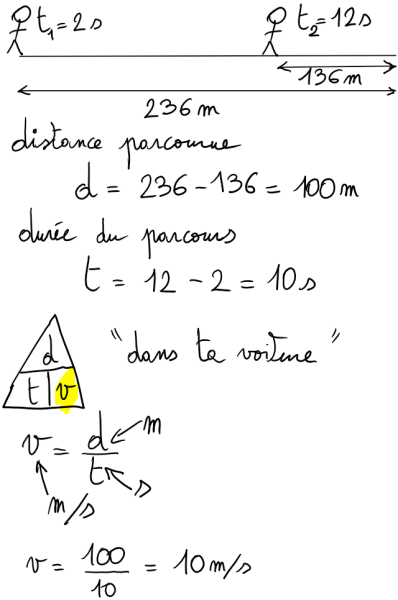 t₁=2s t₂=12s
136m
236m
distance parcourue
d = 236-136 = 100m
durée du parcours
t = 12 - 2 = 10s
d
t v
"dans ta voiture"
v = d/t
m
s
m/s
v = 100/10 = 10m/s